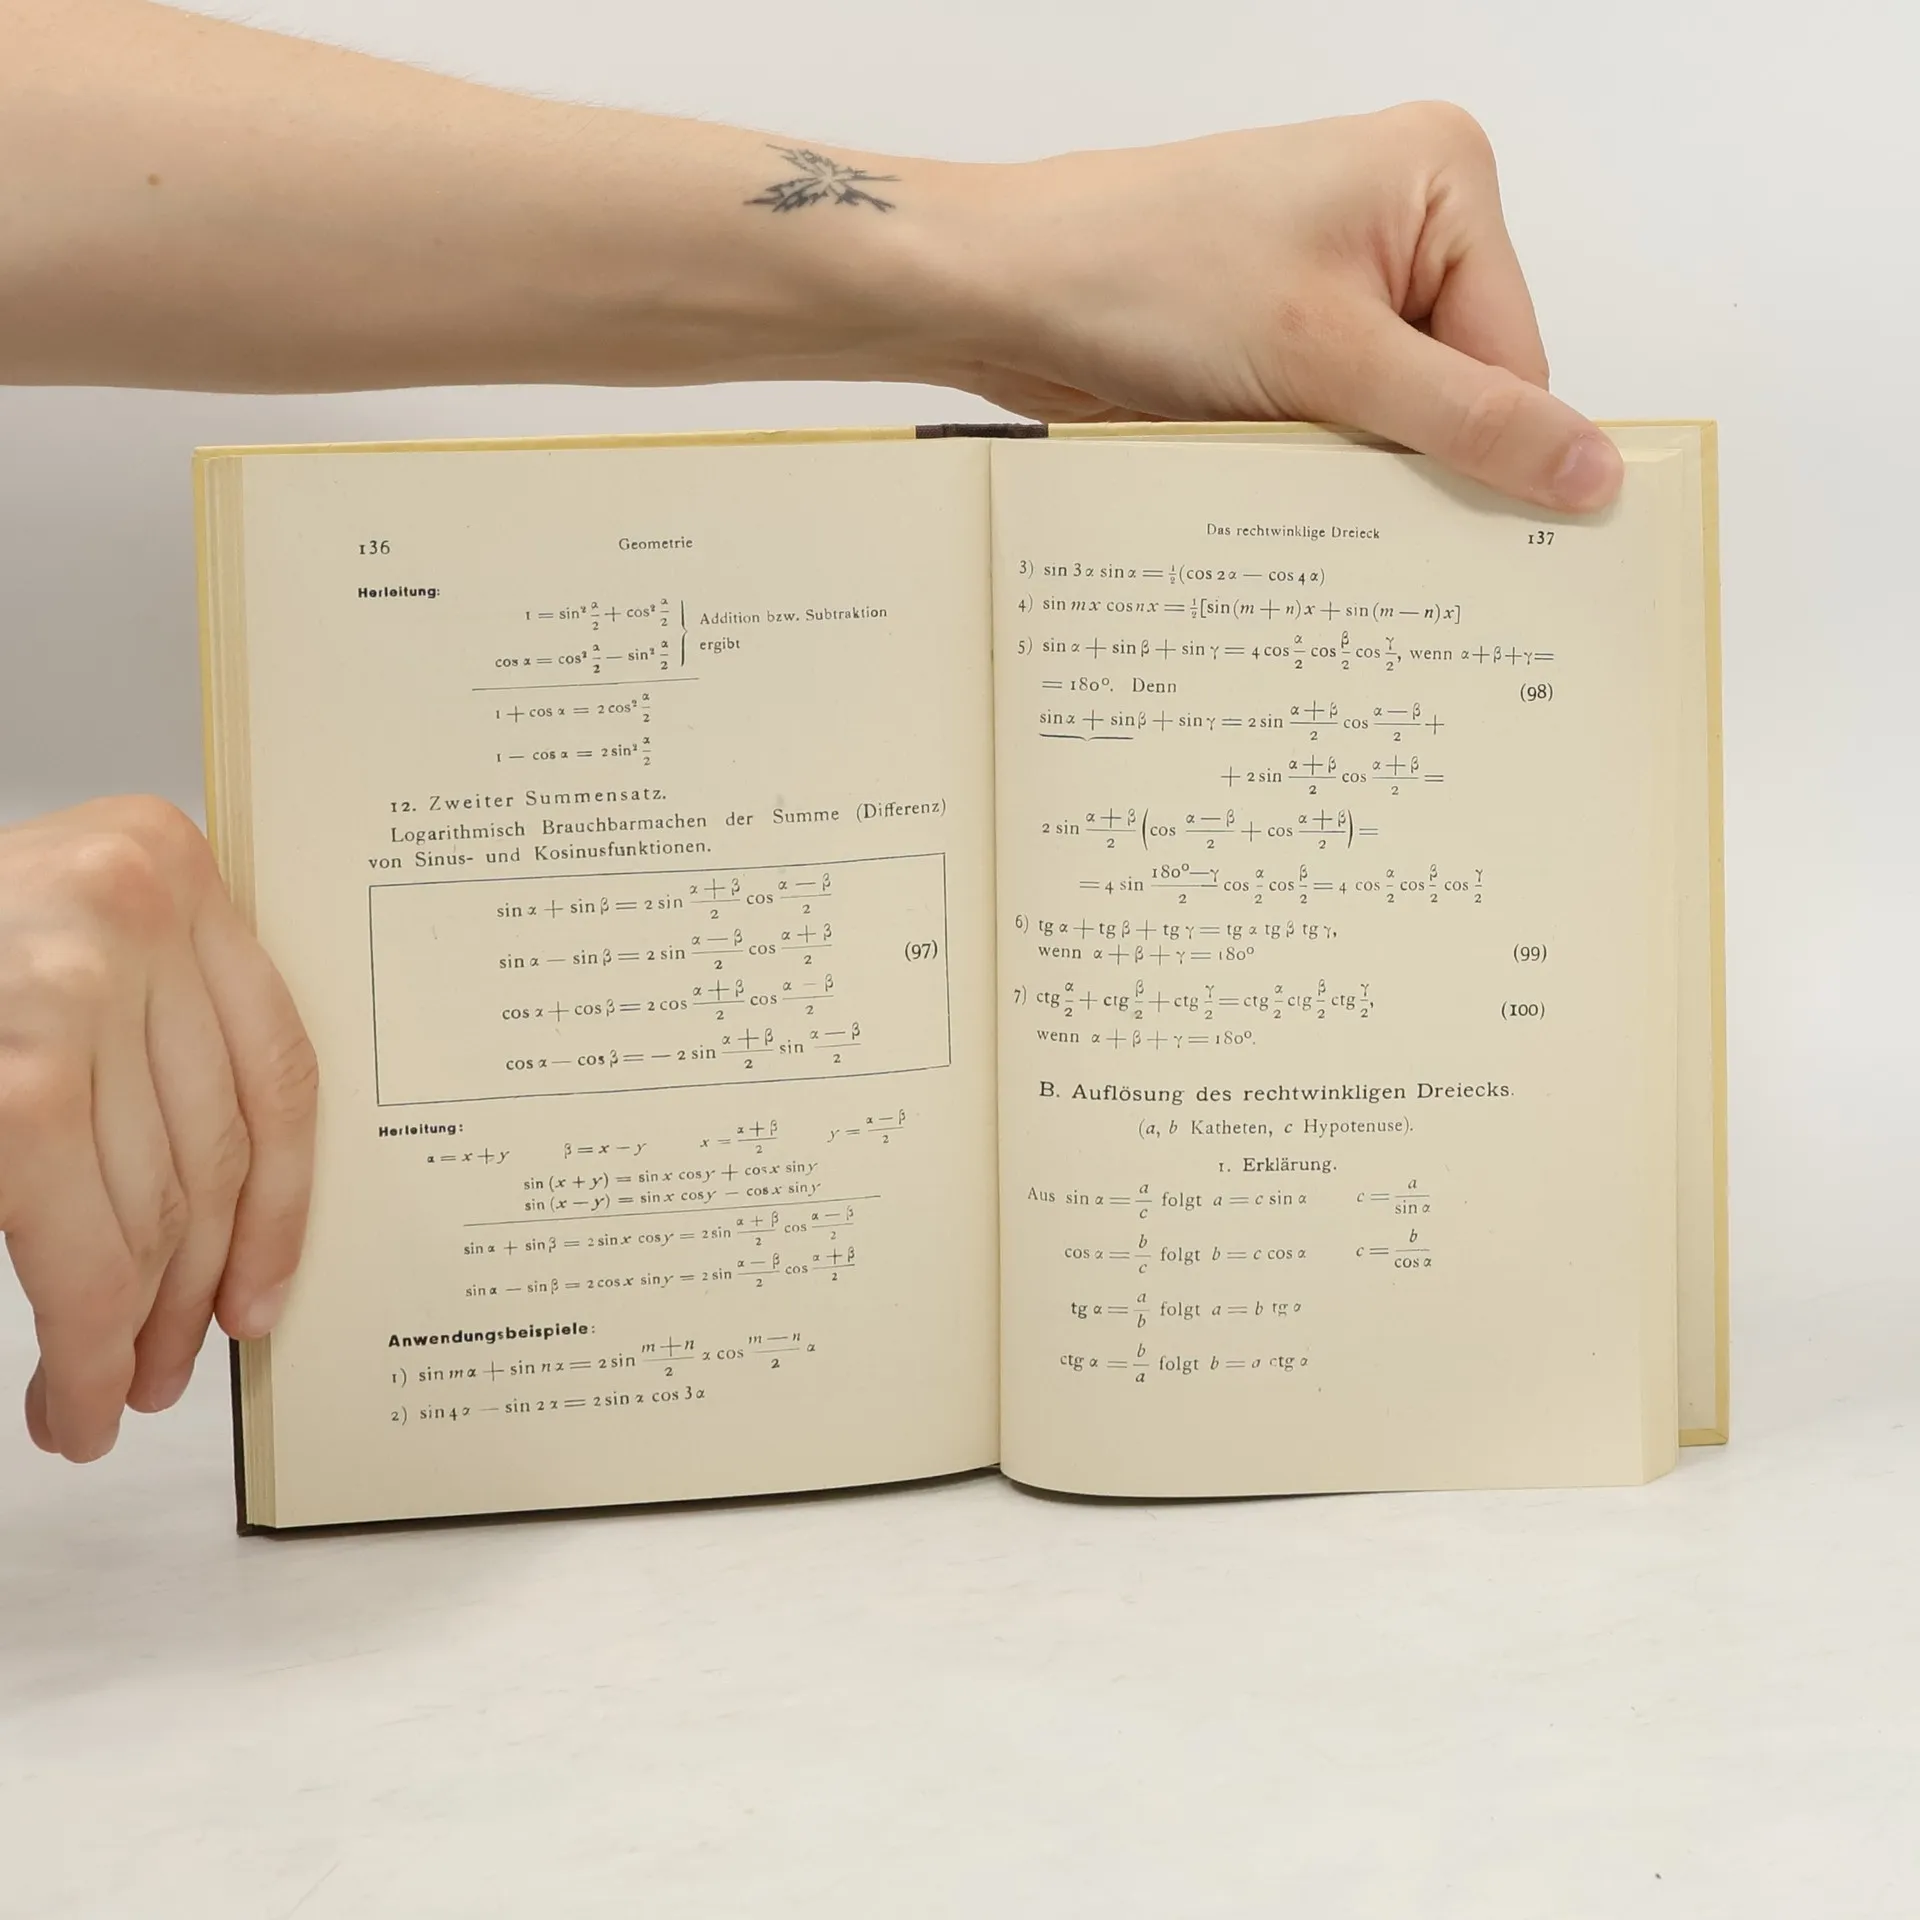 136 Geometrie
Herleitung:
1 = sin² α/2 + cos² α/2 } Addition bzw. Subtraktion
cos α = cos² α/2 — sin² α/2 } ergibt
1 + cos α = 2 cos² α/2
1 — cos α = 2 sin² α/2
12. Zweiter Summensatz.
Logarithmisch Brauchbarmachen der Summe (Differenz)
von Sinus- und Kosinusfunktionen.
sin α + sin β = 2 sin (α + β)/2 cos (α — β)/2
sin α — sin β = 2 sin (α — β)/2 cos (α + β)/2 (97)
cos α + cos β = 2 cos (α + β)/2 cos (α — β)/2
cos α — cos β = — 2 sin (α + β)/2 sin (α — β)/2
Herleitung:
α = x + y β = x — y x = (α + β)/2 y = (α — β)/2
sin (x + y) = sin x cos y + cos x sin y
sin (x — y) = sin x cos y — cos x sin y
sin α + sin β = 2 sin x cos y = 2 sin (α + β)/2 cos (α — β)/2
sin α — sin β = 2 cos x sin y = 2 sin (α — β)/2 cos (α + β)/2
Anwendungsbeispiele:
1) sin m α + sin n α = 2 sin (m + n)/2 α cos (m — n)/2 α
2) sin 4 α — sin 2 α = 2 sin α cos 3 α
Das rechtwinklige Dreieck 137
3) sin 3 α sin α = ½ (cos 2 α — cos 4 α)
4) sin m x cos n x = ½ [sin (m + n) x + sin (m — n) x]
5) sin α + sin β + sin γ = 4 cos α/2 cos β/2 cos γ/2, wenn α + β + γ =
= 180°. Denn (98)
sin α + sin β + sin γ = 2 sin (α + β)/2 cos (α — β)/2 +
+ 2 sin (α + β)/2 cos (α + β)/2 =
2 sin (α + β)/2 (cos (α — β)/2 + cos (α + β)/2) =
= 4 sin (180° — γ)/2 cos α/2 cos β/2 = 4 cos α/2 cos β/2 cos γ/2
6) tg α + tg β + tg γ = tg α tg β tg γ,
wenn α + β + γ = 180° (99)
7) ctg α/2 + ctg β/2 + ctg γ/2 = ctg α/2 ctg β/2 ctg γ/2, (100)
wenn α + β + γ = 180°.
B. Auflösung des rechtwinkligen Dreiecks.
(a, b Katheten, c Hypotenuse).
1. Erklärung.
Aus sin α = a/c folgt a = c sin α c = a/sin α
cos α = b/c folgt b = c cos α c = b/cos α
tg α = a/b folgt a = b tg α
ctg α = b/a folgt b = a ctg α